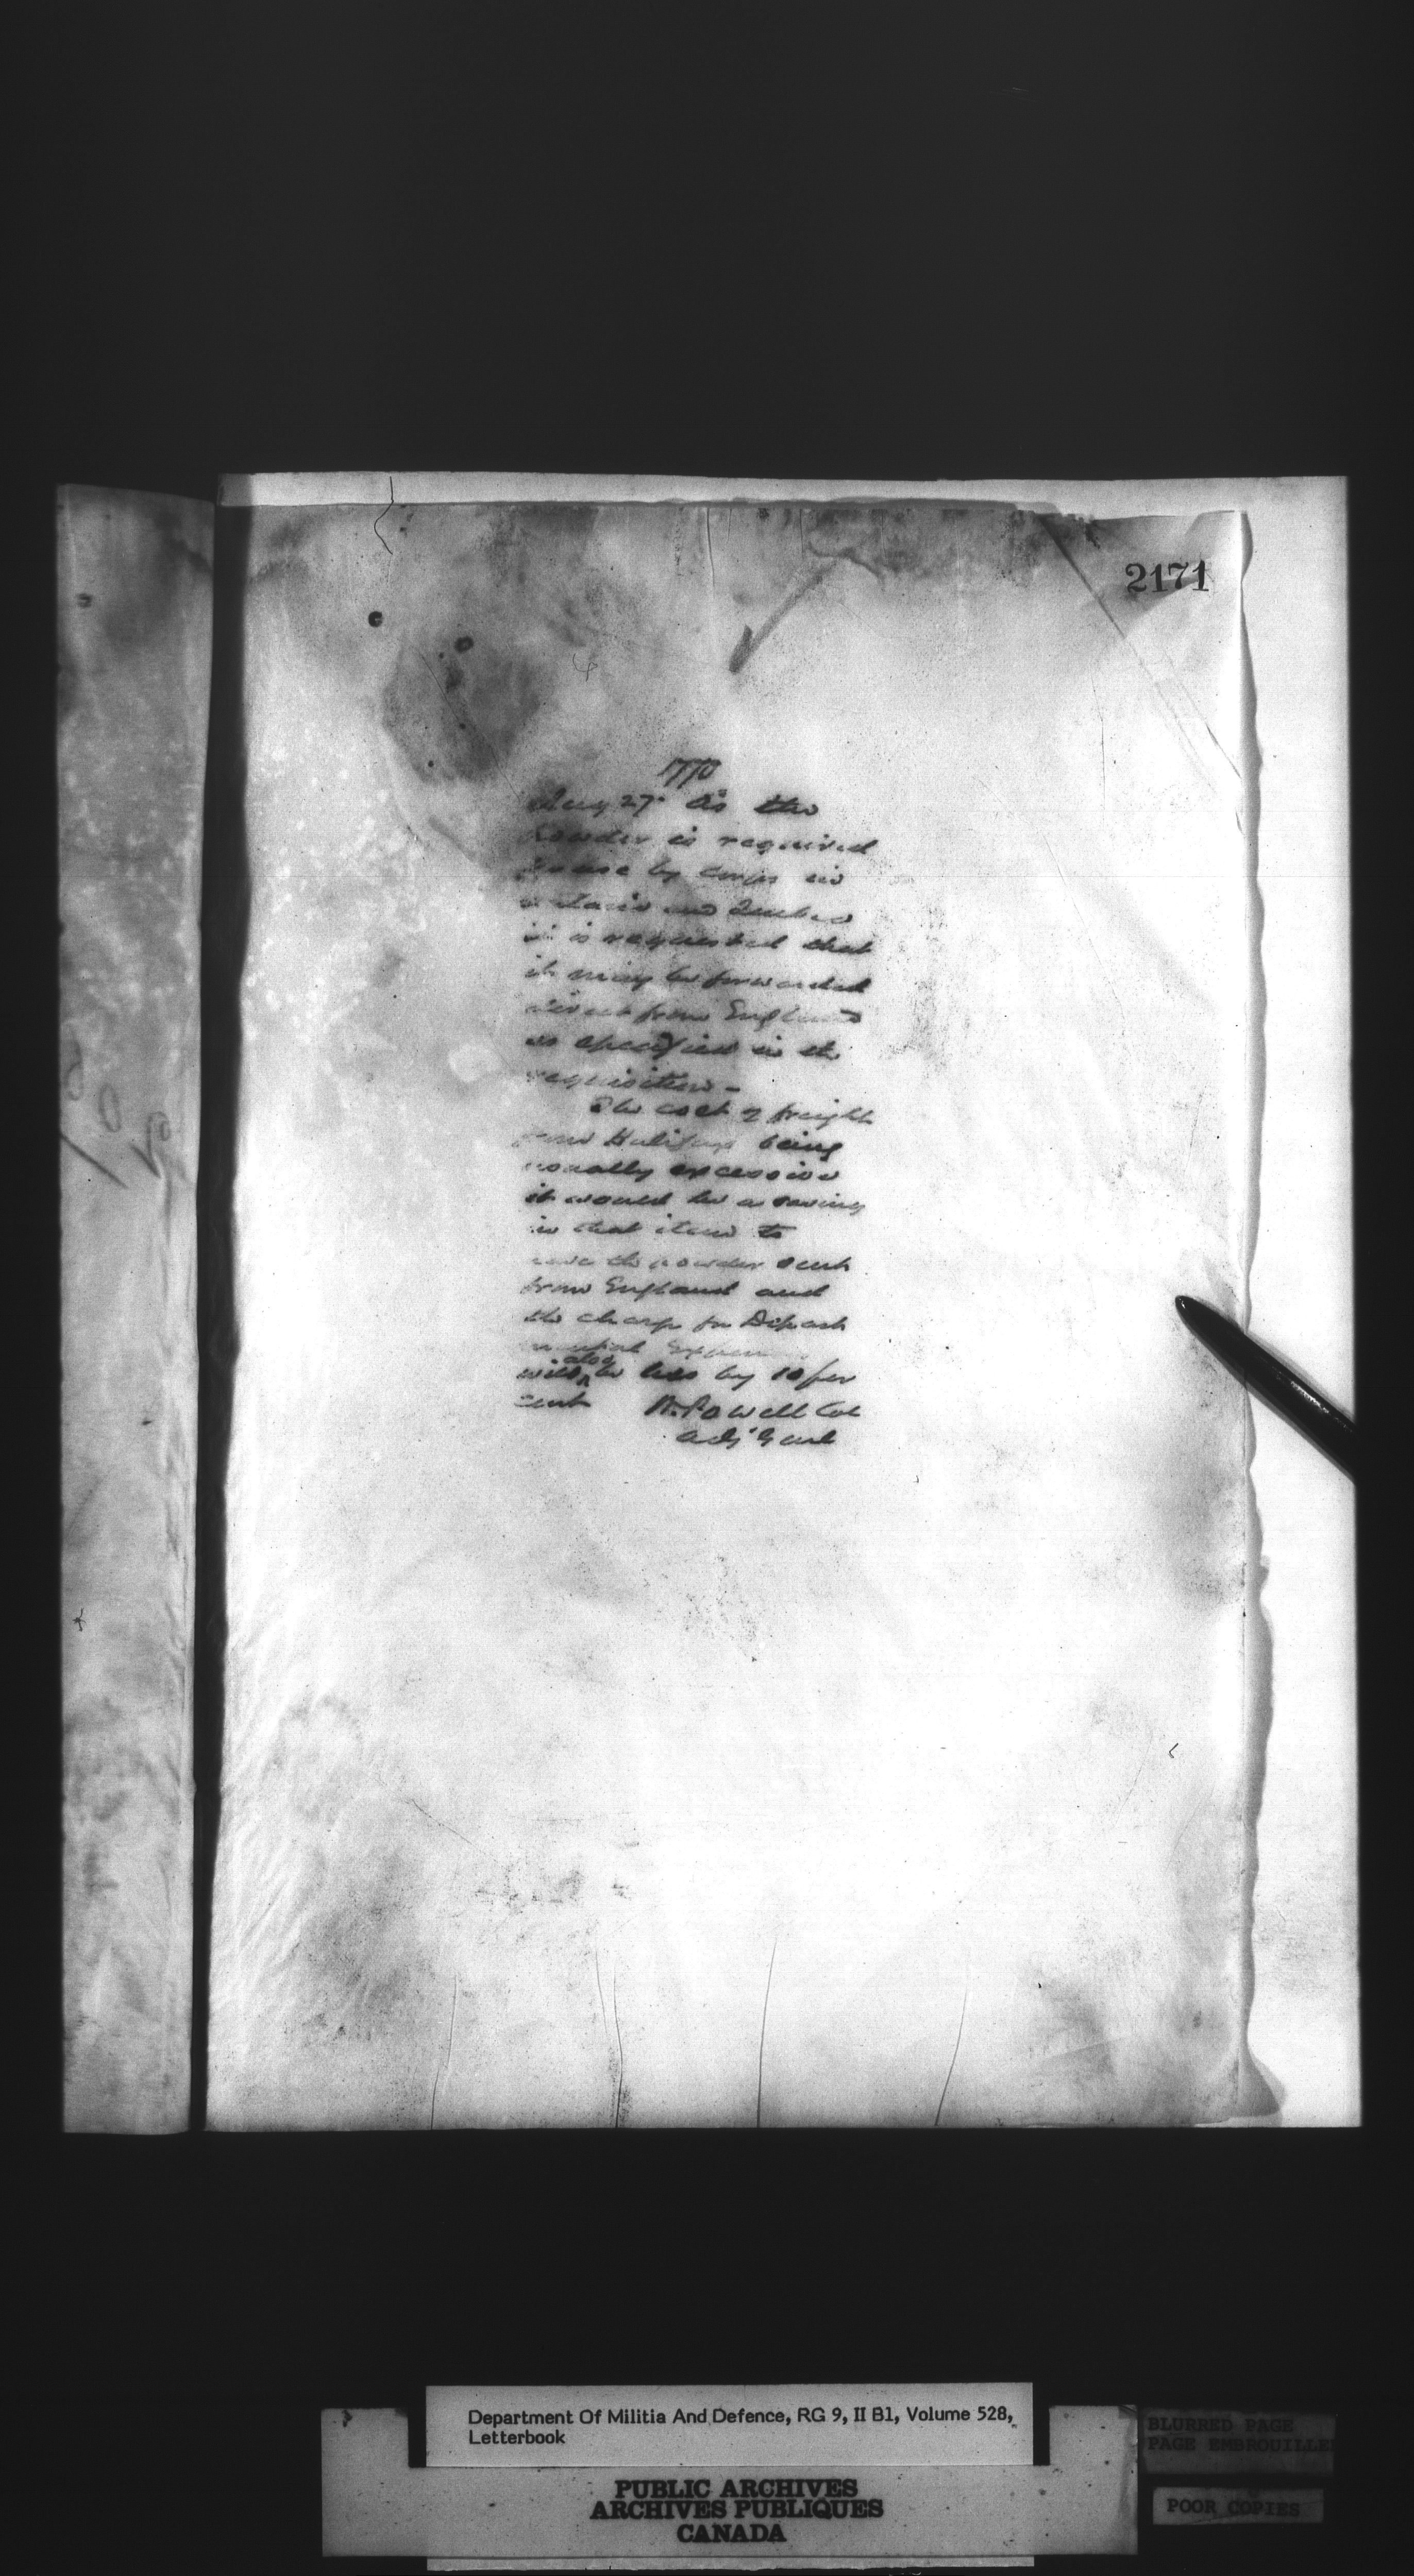 2171
1770
Aug 27. As the
Powder is required
for use by Corps in
Ontario and Quebec
it is requested that
it may be forwarded
direct from England
as specified in the
requisition -
The cost of freight
from Halifax being
usually excessive
it would be a saving
in that item to
have the powder sent
from England and
the charge for Depart
mental Expenses
also
will be less by 10 per
cent W. Powell Col
Adj' Genl
Department Of Militia And Defence, RG 9, II B1, Volume 528,
Letterbook
PUBLIC ARCHIVES
ARCHIVES PUBLIQUES
CANADA
BLURRED PAGE
PAGE EMBROUILLEE
POOR COPIES